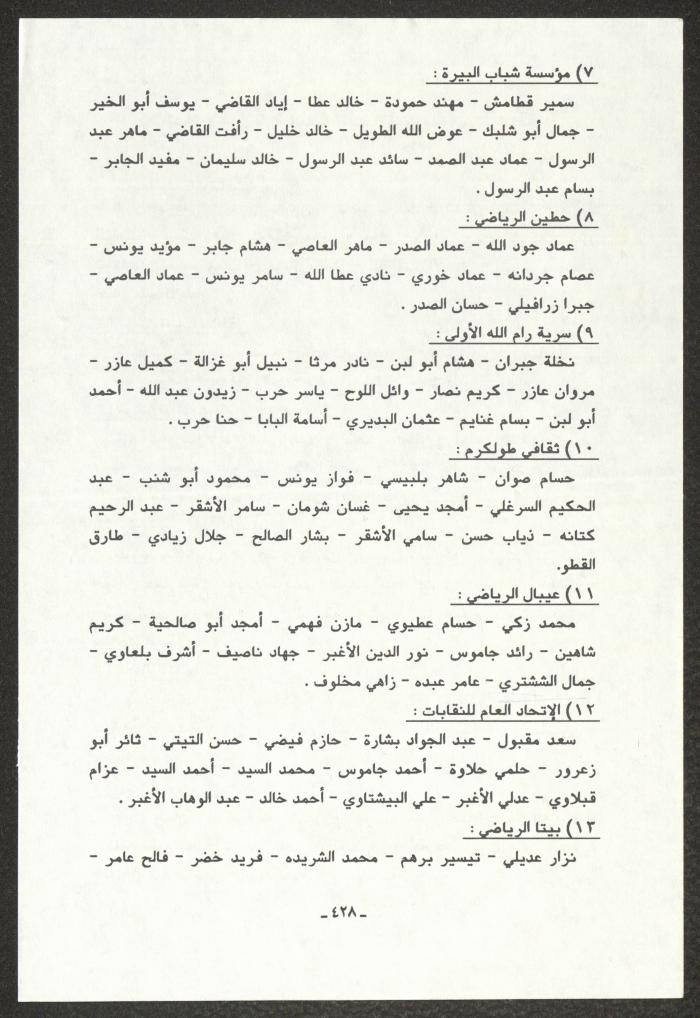 ٧) مؤسسة شباب البيرة :
سمير قطامش - مهند حمودة - خالد عطا - إياد القاضي - يوسف أبو الخير
- جمال أبو شلبك - عوض الله الطويل - خالد خليل - رأفت القاضي - ماهر عبد
الرسول - عماد عبد الصمد - سائد عبد الرسول - خالد سليمان - مفيد الجابر -
بسام عبد الرسول .
٨) حطين الرياضي :
عماد جود الله - عماد الصدر - ماهر العاصي - هشام جابر - مؤيد يونس -
عصام جردانه - عماد خوري - نادي عطا الله - سامر يونس - عماد العاصي -
جبرا زرافيلي - حسان الصدر .
٩) سرية رام الله الأولى :
نخلة جبران - هشام أبو لبن - نادر مرثا - نبيل أبو غزالة - كميل عازر -
مروان عازر - كريم نصار - وائل اللوح - ياسر حرب - زيدون عبد الله - أحمد
أبو لبن - بسام غنايم - عثمان البديري - أسامة البابا - حنا حرب .
١٠) ثقافي طولكرم :
حسام صوان - شاهر بلبيسي - فواز يونس - محمود أبو شنب - عبد
الحكيم السرغلي - أمجد يحيى - غسان شومان - سامر الأشقر - عبد الرحيم
كتانه - ذياب حسن - سامي الأشقر - بشار الصالح - جلال زيادي - طارق
القطو.
١١) عيبال الرياضي :
محمد زكي - حسام عطيوي - مازن فهمي - أمجد أبو صالحية - كريم
شاهين - رائد جاموس - نور الدين الأغبر - جهاد ناصيف - أشرف بلعاوي -
جمال الششتري - عامر عبده - زاهي مخلوف .
١٢) الإتحاد العام للنقابات :
سعد مقبول - عبد الجواد بشارة - حازم فيضي - حسن التيتي - ثائر أبو
زعرور - حلمي حلاوة - أحمد جاموس - محمد السيد - أحمد السيد - عزام
قبلاوي - عدلي الأغبر - علي البيشتاوي - أحمد خالد - عبد الوهاب الأغبر .
١٣) بيتا الرياضي :
نزار عديلي - تيسير برهم - محمد الشريده - فريد خضر - فالح عامر -
ـ ٤٢٨ ـ